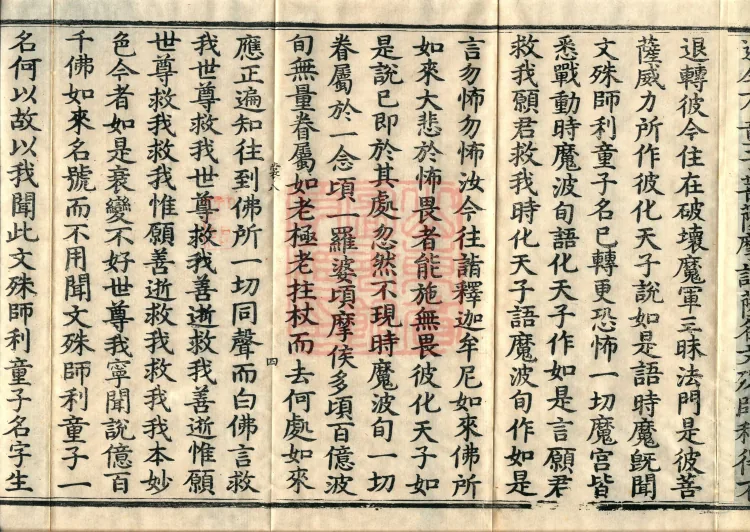 菩薩摩訶薩名文殊師利得大
退轉彼今住在破壞魔軍三昧法門是彼菩
薩威力所作彼化天子說如是語時魔旣聞
文殊師利童子名已轉更恐怖一切魔宮皆
悉戰動時魔波旬語化天子作如是言願君
救我願君救我時化天子語魔波旬作如是
言勿怖勿怖汝今往詣釋迦牟尼如來佛所
如來大悲於怖畏者能施無畏彼化天子如
是說已即於其處忽然不現時魔波旬一切
眷屬於一念頃一羅婆頃摩侯多頃百億波
旬無量眷屬如老極老拄杖而去何處如來
四
應正遍知往到佛所一切同聲而白佛言救
我世尊救我世尊救我善逝救我善逝惟願
世尊救我救我惟願善逝救我救我我本妙
色今者如是衰變不好世尊我寧聞說億百
千佛如來名號而不用聞文殊師利童子一
名何以故以我聞此文殊師利童子名字生